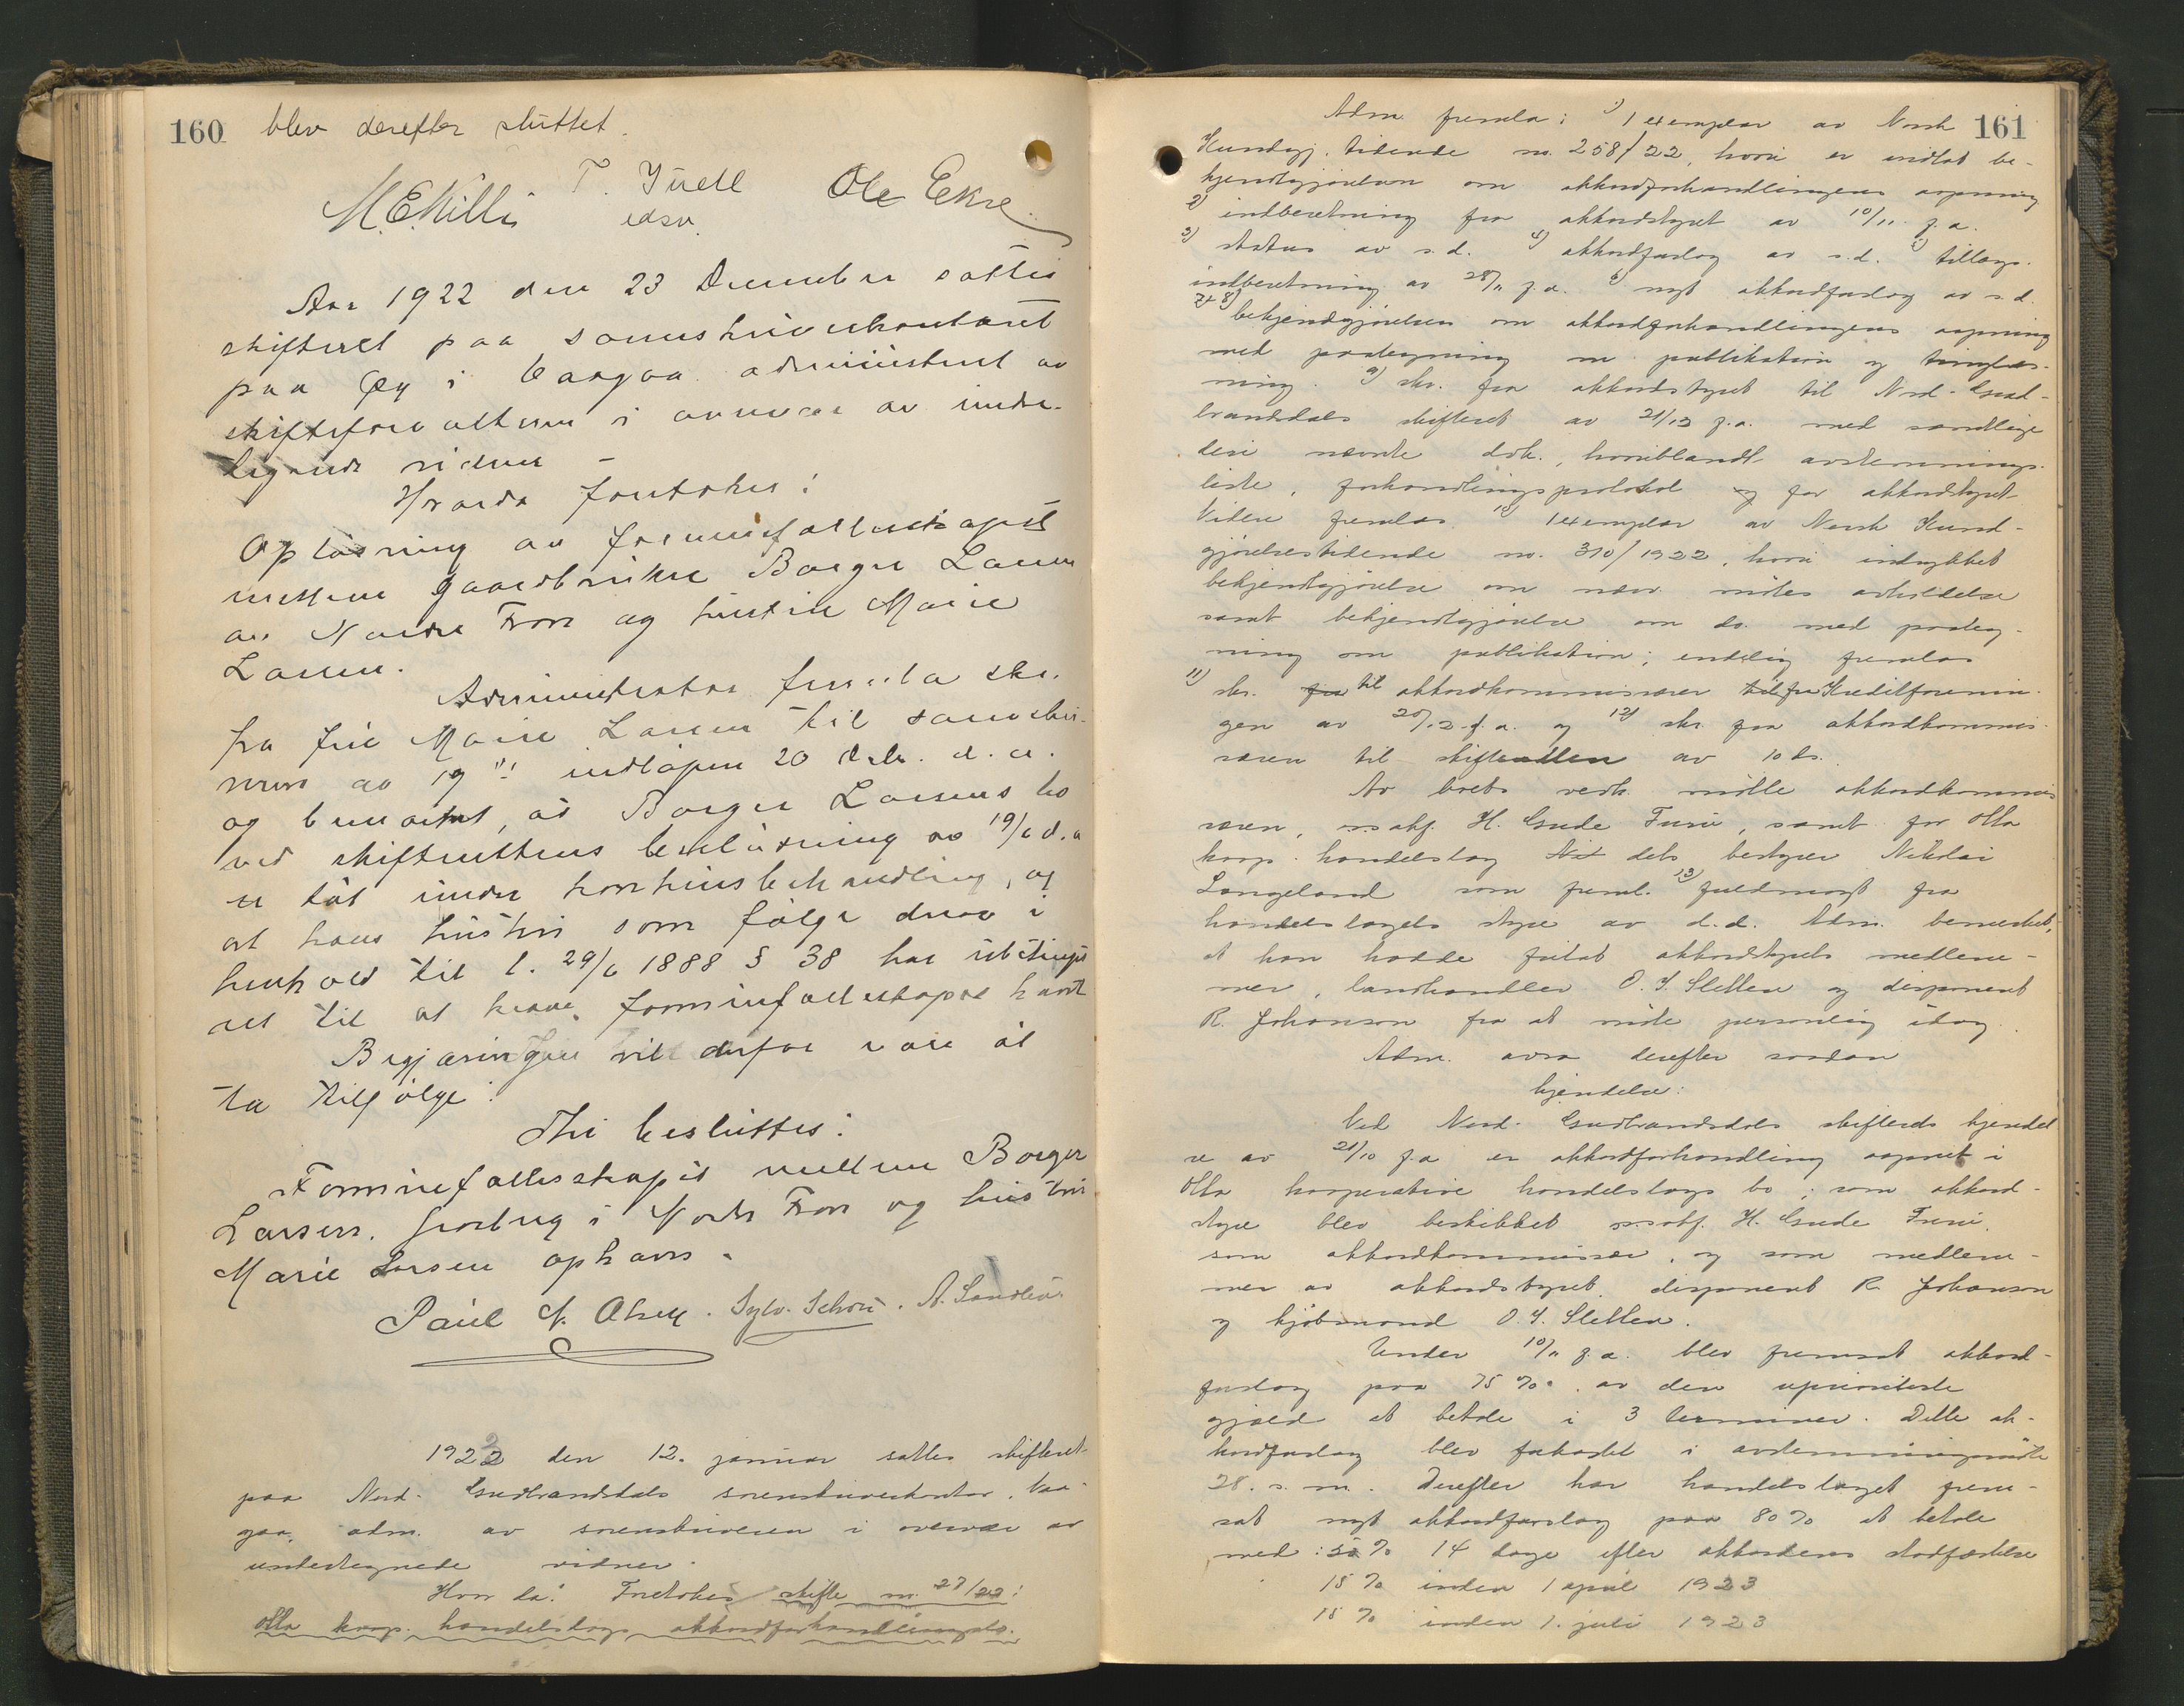 160 blev derefter sluttet.
M.E.Killi T. Juell Ole Ekre
edsv.
Aar 1922 den 23 December sattes
skifteret paa sorenskriverkontoret
paa Øy i Vaagaa administrert av
skifteforvalteren i overvær av under-
tegnede vidner –
Hvorda foretokes:
Opløsning av formuesfællesskapet
mellem gaardbruker Borger Larsen
av Nordre Fron og hustru Marie
Larsen.
Administrator fremla skr.
fra fru Marie Larsen til sorenskri-
veren av 19 indløpen 20 dsbr. d.a.
og bemerket, at Borger Larsens bo
ved skifterettens beslutning av 19/6 d.a
er tat under konkursbehandling, og
at hans hustru som følge derav i
henhold til l. 29/6 1888 § 38 har ubetinget
ret til at kræve formuesfællesskapet hævet
Begjæringen vil derfor være at
ta tilfølge.
Thi besluttes:
Formuefællesskapet mellem Borger
Larsen, i Nordre Fron og hustru
Marie Larsen ophæves.
Paul N. Olsen. Sylv. Schou. A. Sandbu
1923 den 12. januar sattes skifteret
paa Nord-Gudbrandsdals sorenskriverkontor, Vaa-
gaa, adm. av sorenskriveren i overvær av
undertegnede vidner.
Hvor da: Foretokes skifte nr. 27/22:
Otta koop. handelslags akkordforhandlingsbo.
161
Adm. fremla: 1) 1 exemplar av Norsk
Kundgj. tidende nr. 258/22, hvori er indtat be-
kjendtgjørelsen om akkordforhandlingens aapning
2) indberetning fra akkordstyret av 10/11 f.a.
3) status av s.d. 4) akkordforslag av s.d. 5) tillægs-
indberetning av 28/11 f.a. 6) nyt akkordforslag av s.d.
7+8) bekjendtgjørelsen om akkordforhandlingens aapning
med paategning om publikation og tinglæs-
ning. 9) skr. fra akkordstyret til Nord-Gud-
brandsdals skifteret av 21/12 f.a. med samtlige
deri nævnte dok., hvoriblandt avstemnings-
liste, forhandlingsprotokol for akkordstyret
Videre fremlaes 10) 1 exemplar av Norsk Kund-
gjørelsestidende nr. 310/1922, hvori indrykket
bekjendtgjørelse om nærv. møtes avholdelse
samt bekjendtgjørelse om do. med paateg-
ning om publikation; endelig fremlaes
11) skr. til akkordkommissæren fra Kreditforenin-
gen av 20/12 f.a. og 12) skr. fra akkordkommis-
særen til skifteretten av 10 ds.
Av boets vedk. møtte akkordkommis
særen, o.r.sakf. H. Gude Furu, samt for Otta
koop. handelslag dets bestyrer Nikolai
Langeland som freml. 13) fuldmagt fra
handelslagets styre av d.d. Adm. bemerket,
at han hadde fritat akkordstyrets medlem-
mer, landhandler O. J. Sletten og disponent
R. Johanson fra at møte personlig idag.
Adm. avsa derefter saadan
kjendelse:
Ved Nord-Gudbrandsdals skifterets kjendel
se av 21/10 f.a. er akkordforhandling aapnet i
Otta kooperative handelslags bo; som akkord-
styre blev beskikket o.r.sakf. H. Gude Furu,
som akkordkommissær, og som medlem-
mer av akkordstyret, disponent R. Johanson
og kjøbmand O. J. Sletten.
Under 10/11 f.a. blev fremsat akkord-
forslag paa 75 % av den uprioriterte
gjæld at betale i 3 terminer. Dette ak-
kordforslag blev forkastet i avstemningsmøte
28. s.m. Derefter har handelslaget frem-
sat nyt akkordforslag paa 80 % at betale
med: 50 % 14 dage efter akkordens stadfæstelse
15 % inden 1 april 1923
15 % inden 1. juli 1923